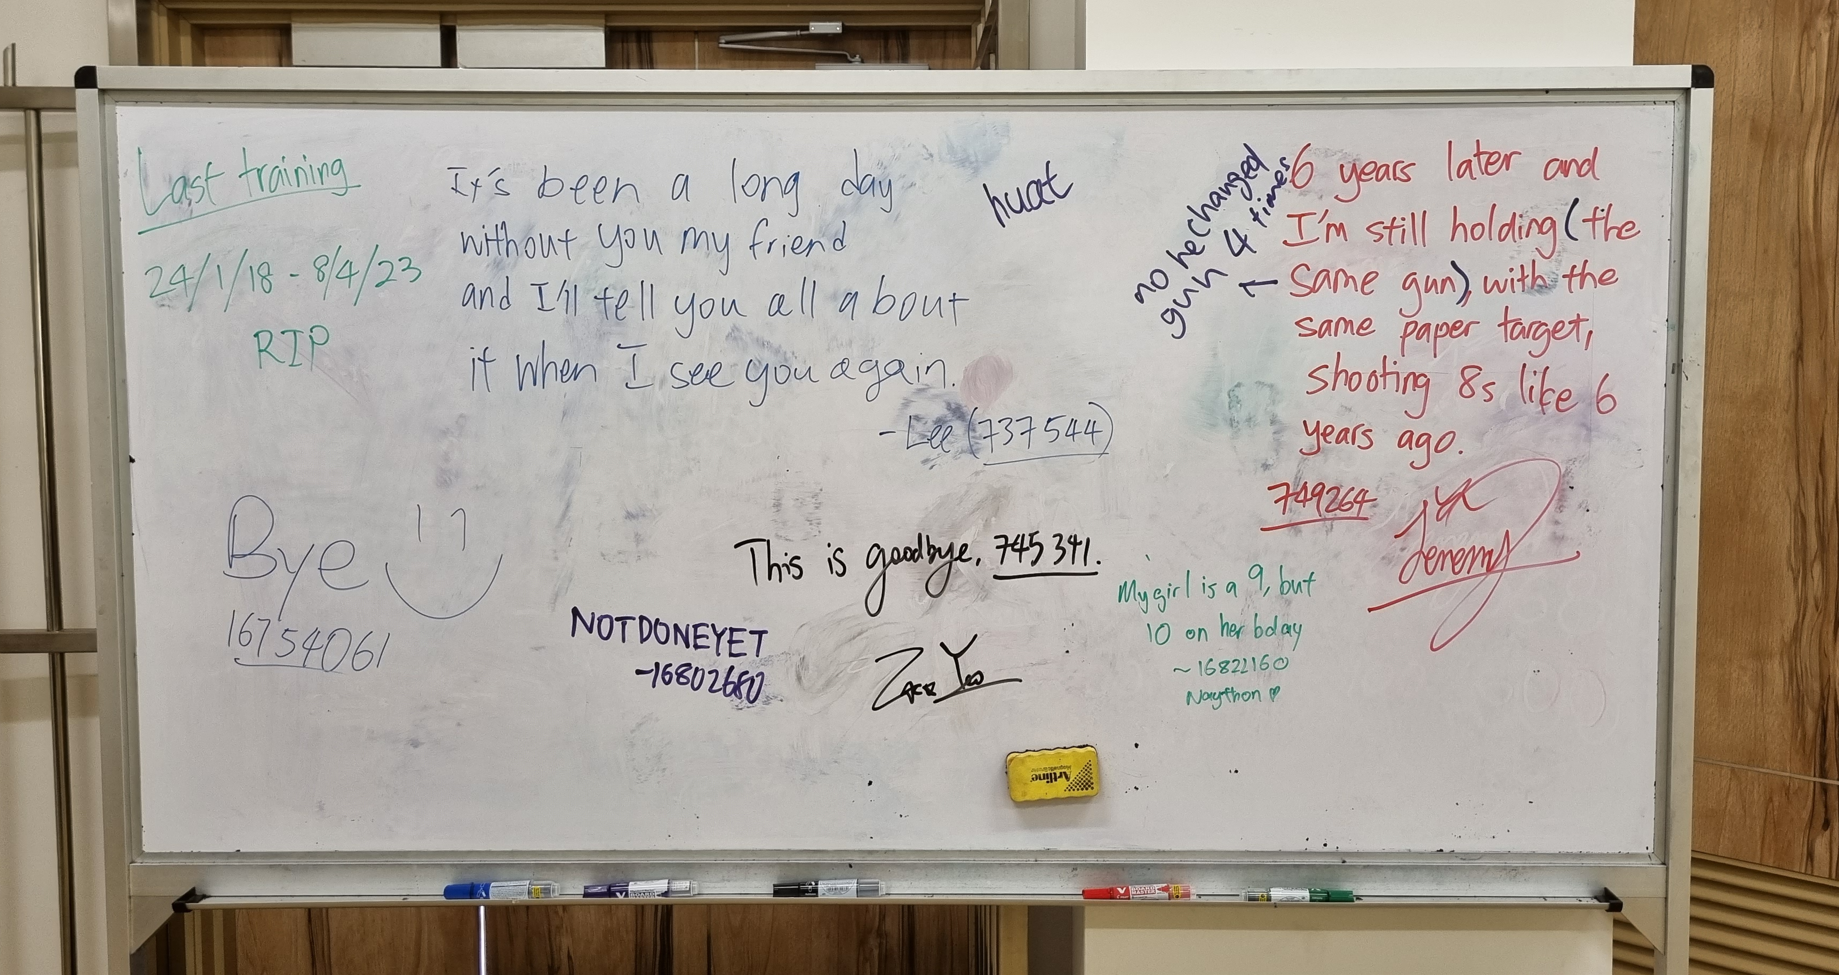 Last training
24/1/18 - 8/4/23
RIP
It's been a long day
without you my friend
and I'll tell you all about
it when I see you again.
-Lee (737544)
huat
no he changed
gun 4 times
←
6 years later and
I'm still holding (the
same gun), with the
same paper target,
shooting 8s like 6
years ago.
749264
Jeremy
Bye
16754061
This is goodbye, 745341.
Zack Yeo
NOTDONEYET
-16802680
My girl is a 9, but
10 on her bday
~16822160
Naython ♥
Artline